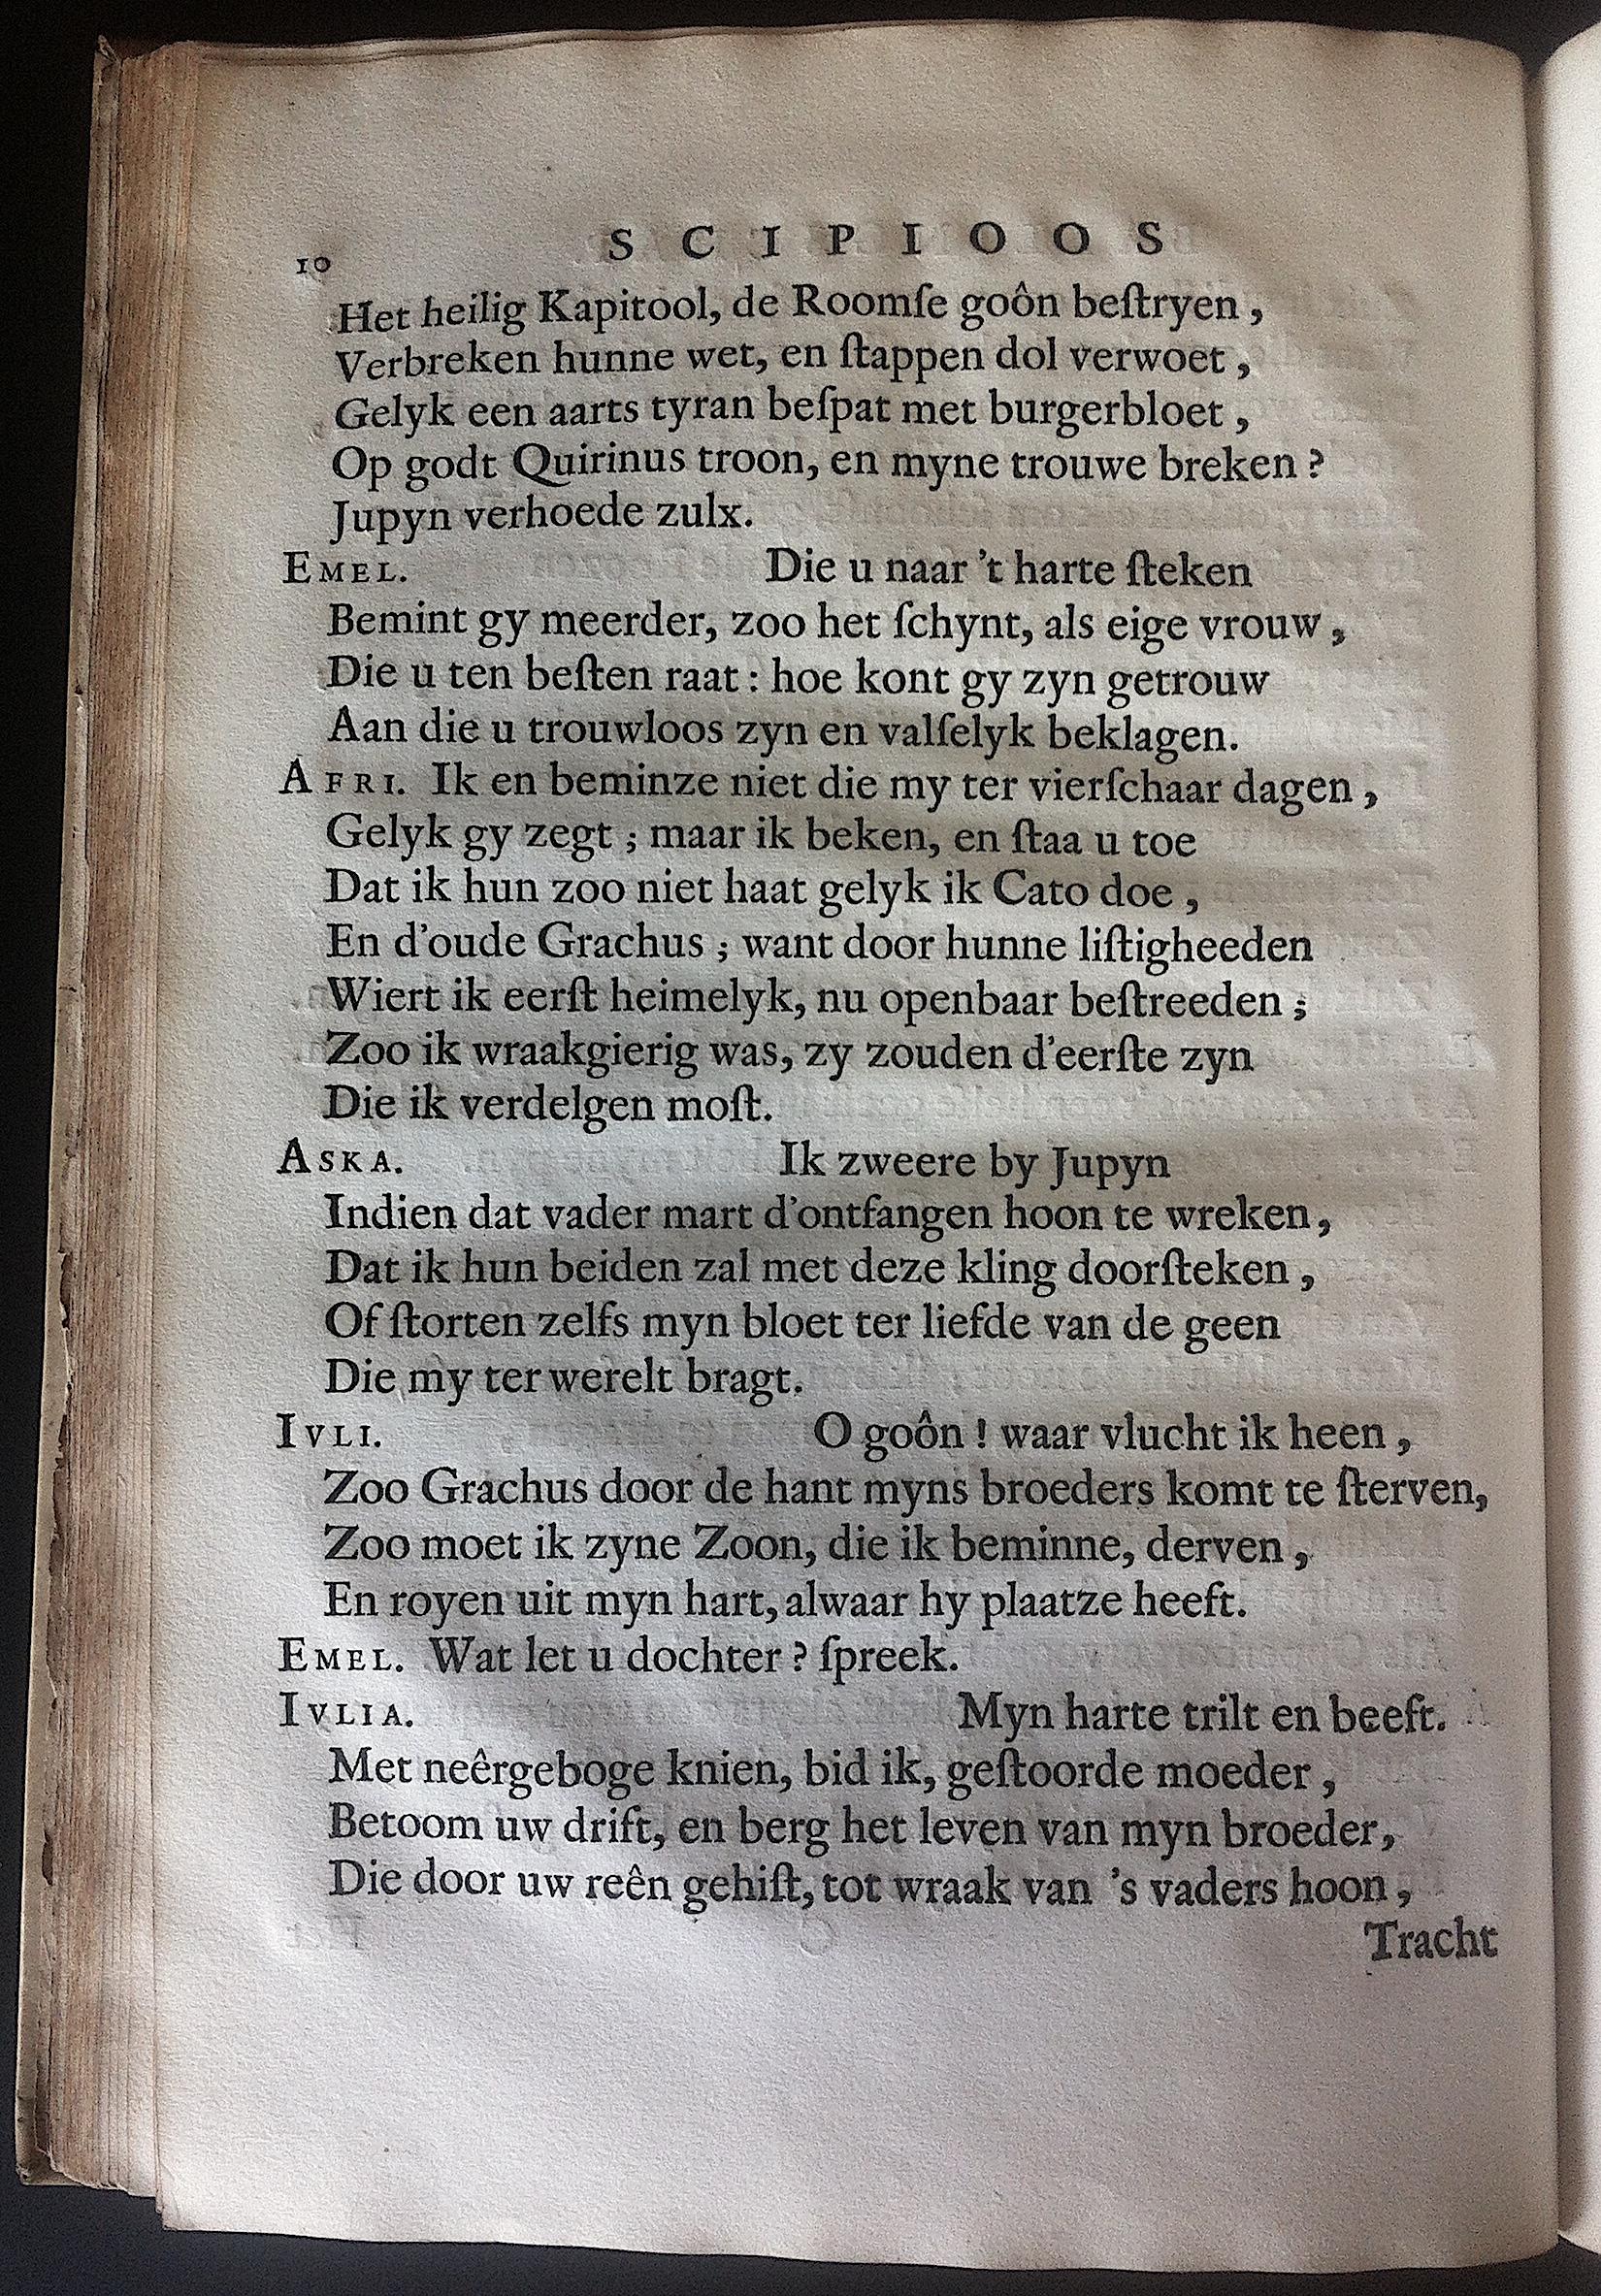 10 SCIPIOOS
Het heilig Kapitool, de Roomſe goôn beſtryen,
Verbreken hunne wet, en ſtappen dol verwoet,
Gelyk een aarts tyran beſpat met burgerbloet,
Op godt Quirinus troon, en myne trouwe breken?
Jupyn verhoede zulx.
EMEL. Die u naar 't harte ſteken
Bemint gy meerder, zoo het ſchynt, als eige vrouw,
Die u ten beſten raat: hoe kont gy zyn getrouw
Aan die u trouwloos zyn en valſelyk beklagen.
AFRI. Ik en beminze niet die my ter vierſchaar dagen,
Gelyk gy zegt; maar ik beken, en ſtaa u toe
Dat ik hun zoo niet haat gelyk ik Cato doe,
En d'oude Grachus; want door hunne liſtigheeden
Wiert ik eerſt heimelyk, nu openbaar beſtreeden;
Zoo ik wraakgierig was, zy zouden d'eerſte zyn
Die ik verdelgen moſt.
ASKA. Ik zweere by Jupyn
Indien dat vader mart d'ontfangen hoon te wreken,
Dat ik hun beiden zal met deze kling doorſteken,
Of ſtorten zelfs myn bloet ter liefde van de geen
Die my ter werelt bragt.
IVLI. O goôn! waar vlucht ik heen,
Zoo Grachus door de hant myns broeders komt te ſterven,
Zoo moet ik zyne Zoon, die ik beminne, derven,
En royen uit myn hart, alwaar hy plaatze heeft.
EMEL. Wat let u dochter? ſpreek.
IVLIA. Myn harte trilt en beeft.
Met neêrgeboge knien, bid ik, geſtoorde moeder,
Betoom uw drift, en berg het leven van myn broeder,
Die door uw reên gehiſt, tot wraak van 's vaders hoon,
Tracht